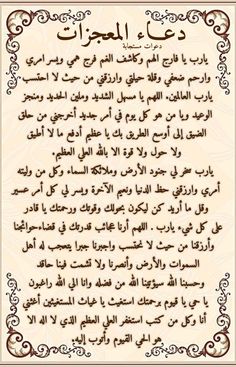 دعاء المعجزات
دعوات مستجابة
يارب يا فارج الهم وكاشف الغم فرج همي ويسر امري
وارحم ضعفي وقلة حيلتي وارزقني من حيث لا احتسب
يارب العالمين. اللهم يا مسهل الشديد وملين الحديد ومنجز
الوعيد ويا من هو كل يوم في أمر جديد أخرجني من حلق
الضيق إلى أوسع الطريق بك يا عظيم أدفع ما لا أطيق
ولا حول ولا قوة الا بالله العلي العظيم.
يارب سخر لي جنود الأرض وملائكة السماء وكل من وليته
أمري وارزقني حظ الدنيا ونعيم الآخرة ويسر لي كل أمر عسير
وقل ما أريد كن ليكون بحولك وقوتك ورحمتك يا قادر
على كل شيء يارب . اللهم أرنا عجائب قدرتك في قضاء حوائجنا
وأرزقنا من حيث لا نحتسب واجبرنا جبرا يتعجب له أهل
السموات والأرض وأنصرنا ولا تشمت فينا حاقد
وحسبنا الله سيؤتينا الله من فضله وانا الي الله راغبون
يا حي يا قيوم برحمتك استغيث يا غياث المستغيثين أغثني
أنا وكل من كتب استغفر الله العلي العظيم الذي لا اله الا
هو الحي القيوم وأتوب إليه.